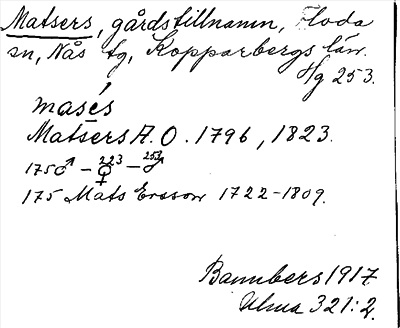 Matsers, gårdstillnamn, Floda
sn, Nås tg, Kopparbergs län.
Hg 253.
masés
Matsers A. O. 1796, 1823.
175♂ – 223♀ – 253♂
175 Mats Ersson 1722–1809.
Bannbers 1917
Ulma 321:2.